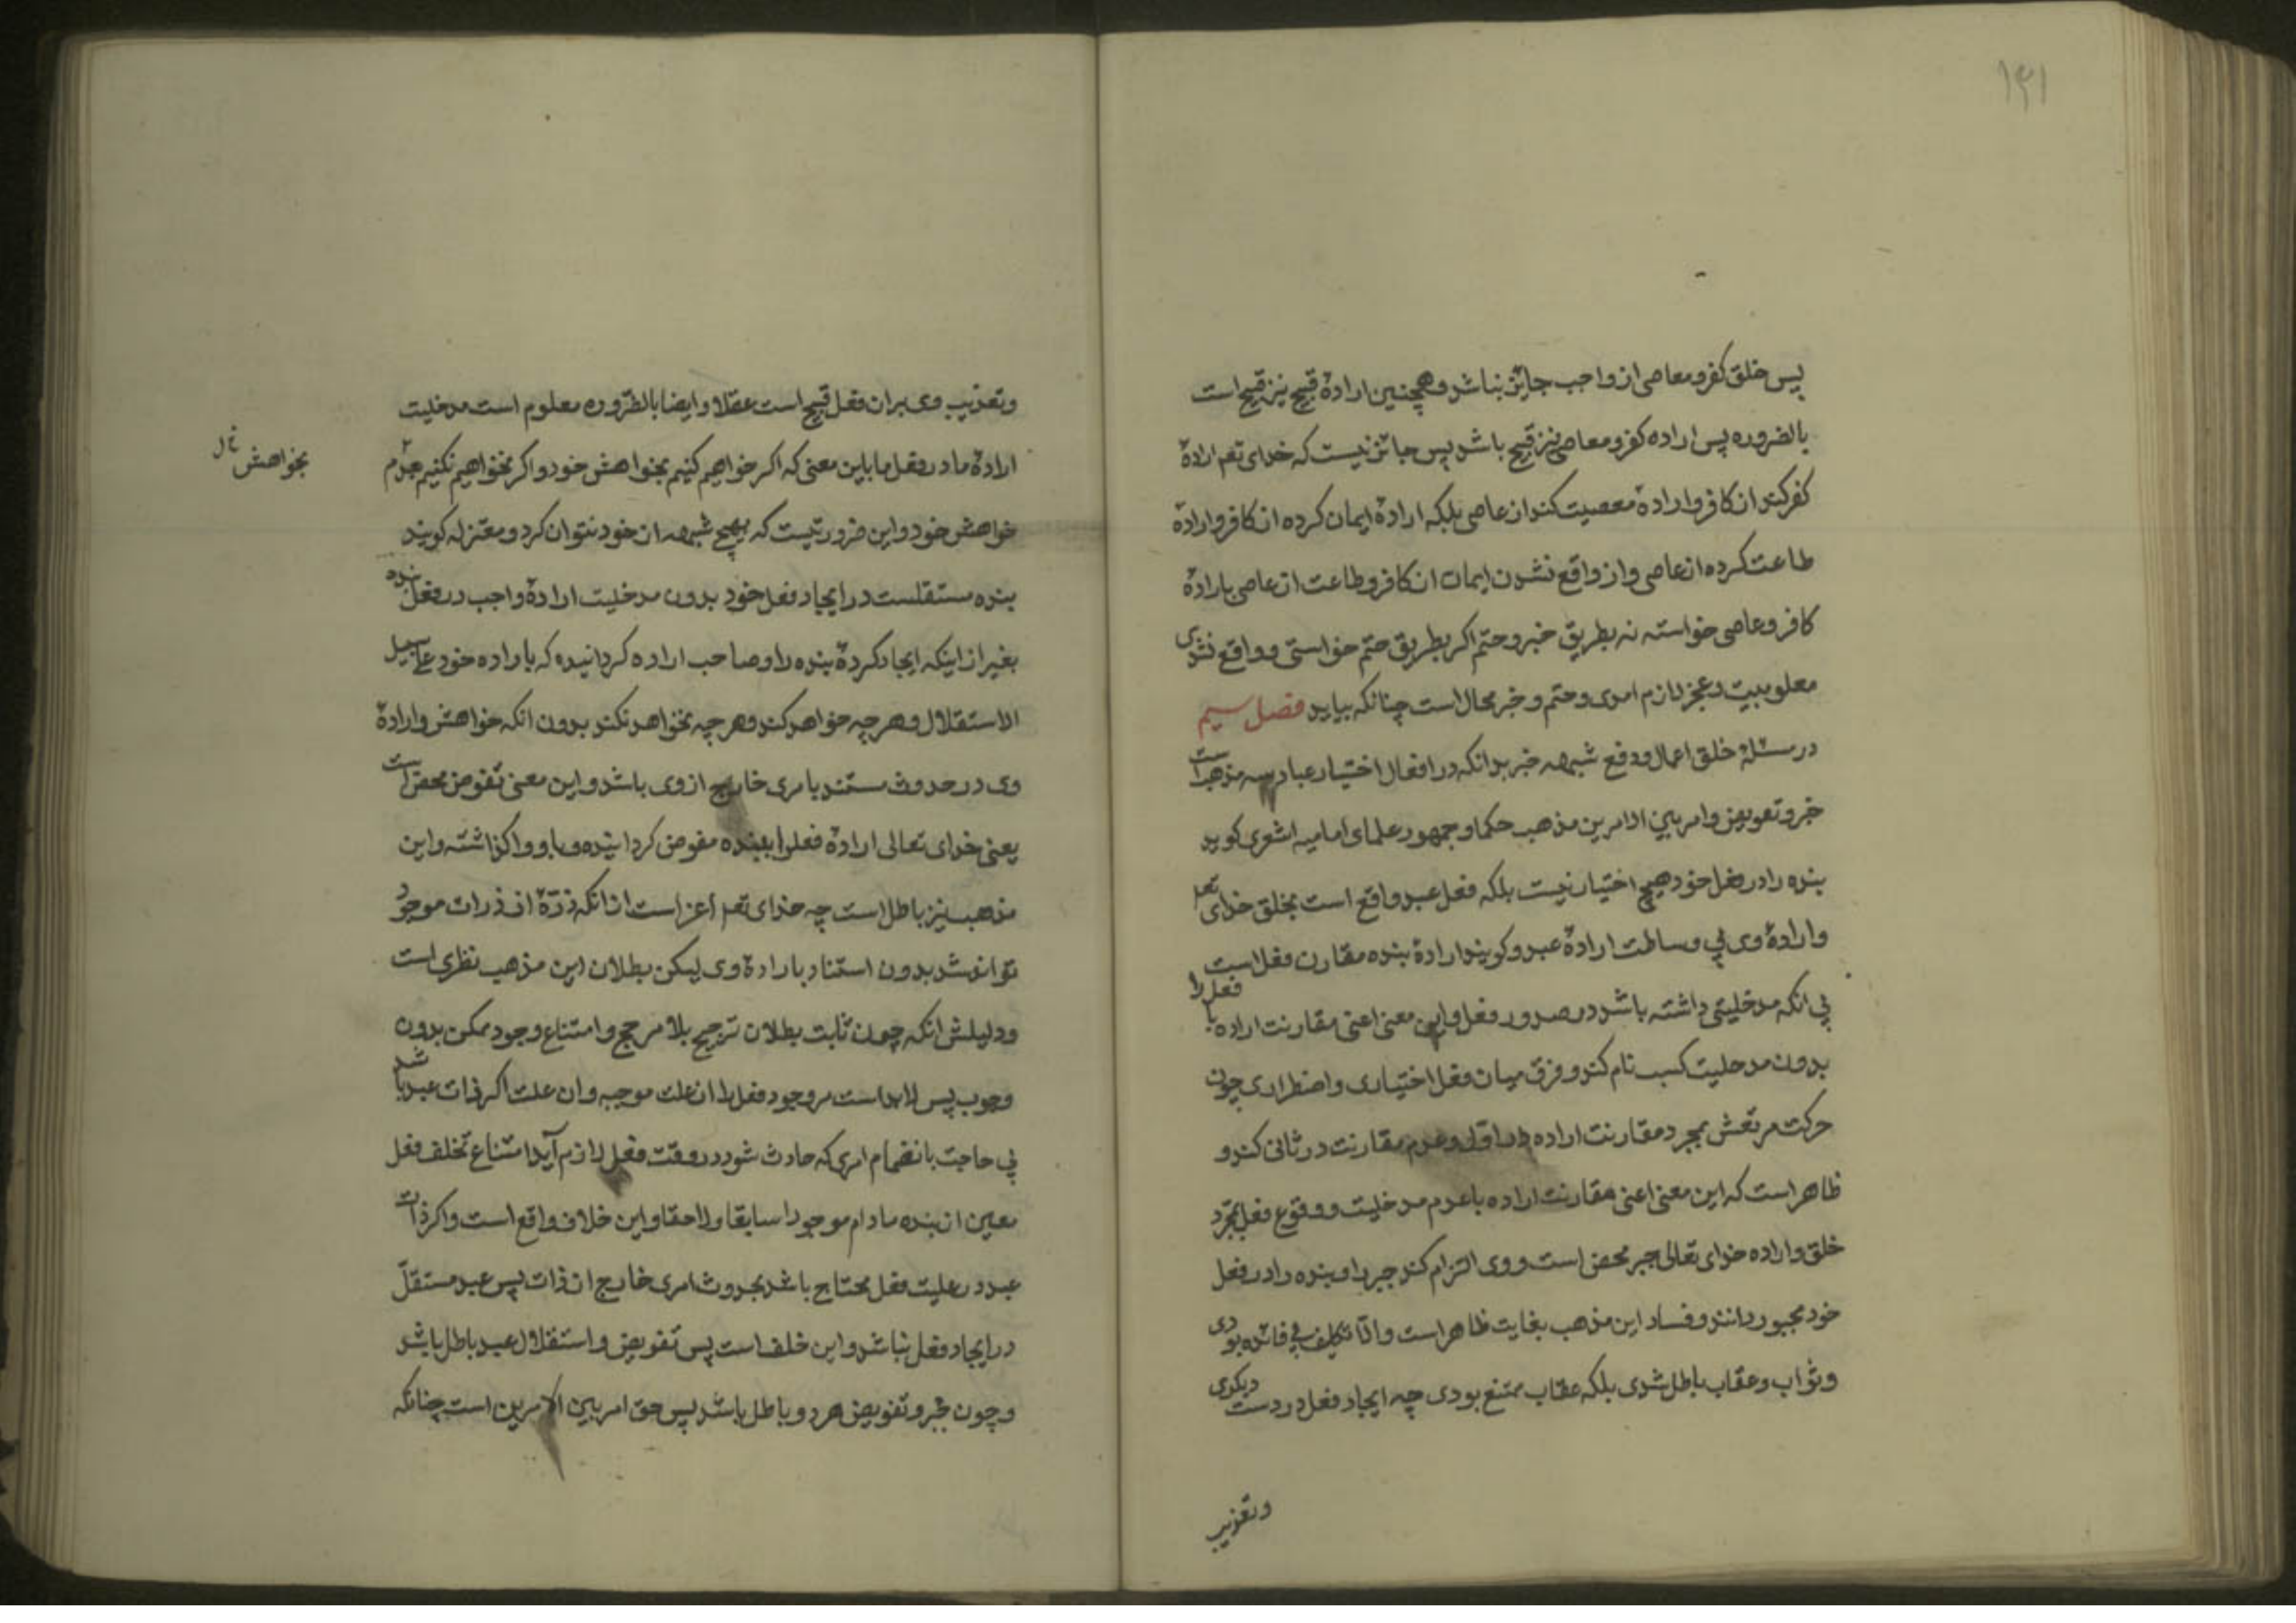 ۱۳۱
پس خلق کفر و معاصی از واجب جایز نباشد و همچنین ارادهٔ قبیح نیز قبیح است
بالضروره پس اراده کفر و معاصی نیز قبیح باشد پس جائز نیست که خدای تعم ارادهٔ
کفر کند از کافر و ارادهٔ معصیت کند از عاصی بلکه ارادهٔ ایمان کرده از کافر و ارادهٔ
طاعت کرده از عاصی و از واقع نشدن ایمان از کافر و طاعت از عاصی بارادهٔ
کافر و عاصی خواسته نه بطریق خبر و حتم اگر بطریق حتم خواستی و واقع نشدی
معلوبیت و عجز لازم امدی و حتم و خبر محال است چنانکه بیاید فصل سیم
در مسئلهٔ خلق اعمال و دفع شبهه خبر بدانکه در افعال اختیار عباد سه مذهب است
خبر و تعویض و امر بین الامرین مذهب حکما و جمهور علمای امامیه اشعری کوید
بنده را در فعل خود هیچ اختیار نیست بلکه فعل عبد واقع است بخلق خدای تعم
و ارادهٔ وی بی وساطت ارادهٔ عبد و کویند ارادهٔ بنده مقارن فعل است
بی انکه مدخلیتی داشته باشد در صدور فعل و این معنی اعنی مقارنت اراده با فعل را
بدون مدحلیت کسب نام کند و فرق میان فعل اختیاری و اضطراری چون
حرکت مرتعش بمجرد مقارنت اراده در اول و عدم مقارنت در ثانی کند و
ظاهر است که این معنی اعنی مقارنت اراده با عدم مدخلیت و وقوع فعل بمجرد
خلق و اراده خدای تعالی جبر محض است و وی التزام کند جبر را و بنده را در فعل
خود مجبور دانند و فساد این مذهب بغایت ظاهر است و الّا تکلیف بی فائده بودی
و ثواب و عقاب باطل شدی بلکه عقاب ممتنع بودی چه ایجاد فعل در دست دیکری
وتعذیب
وتعذیب وی بر ان فعل قبیح است عقلا و ایضا بالضّروره معلوم است مدخلیت
ارادهٔ ما در فعل ما باین معنی که اکر خواهیم کنیم بخواهش خود و اکر نخواهیم نکنیم بعدم
بخواهش خ ل
خواهش خود و این ضروریست که بهیچ شبهه از خود نتوان کرد و معتزله کویند
بنده مستقلست در ایجاد فعل خود بدون مدخلیت ارادهٔ واجب در فعل بنده
بغیر از اینکه ایجاد کردهٔ بنده را و صاحب اراده کردانیده که باراده خود علی سبیل
الاستقلال و هر چه خواهد کند و هر چه نخواهد نکند بدون انکه خواهش و ارادهٔ
وی در حدوث مستند بامری خارج از وی باشد و این معنی تفوض محض است
یعنی خدای تعالی ارادهٔ فعل را ببنده مفوض کردانیده و باو واکذاشته و این
مذهب نیز باطل است چه خدای تعم اعز است از انکه ذرّهٔ از ذرات موجود
تواند شد بدون استناد بارادهٔ وی لیکن بطلان این مذهب نظری است
و دلیلش انکه چون ثابت بطلان ترجیح بلا مرجح و امتناع وجود ممکن بدون
وجوب پس لابد است مر وجود فعل را از علت موجبه و ان علت اکر ذات عبد باشد
بی حاجت بانضمام امری که حادث شود در وقت فعل لازم آید امتناع تخلف فعل
معین از بنده مادام موجودا سابقا و لاحقا و این خلاف واقع است و اکر ذات
عبد در علیت فعل محتاج باشد بحدوث امری خارج از ذات پس عبد مستقلّ
در ایجاد فعل نباشد و این خلف است پس تفویض و استقلال عبد باطل باشد
و چون خبر و تفویض هر دو باطل باشد پس حق امر بین الامرین است چنانکه